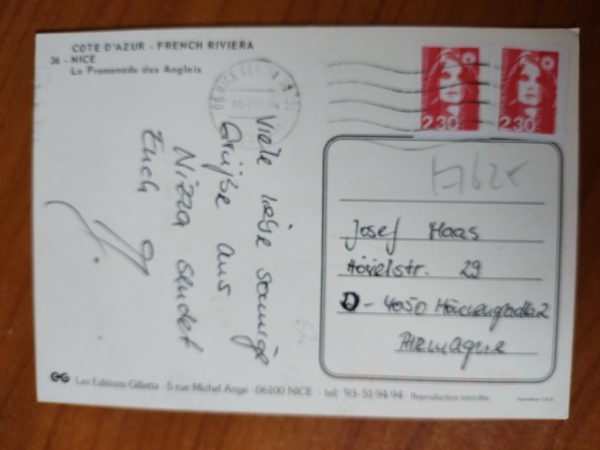 COTE D'AZUR - FRENCH RIVIERA
36 - NICE
La Promenade des Anglais
2,30
2,30
Viele liebe sonnige
Grüße aus
Nizza sendet
Euch
Josef Haas
29
D - 4050 Mönchengladbach 2
Allemagne
GG Les Editions Gilletta - 5 rue Michel Ange - 06100 NICE - tél. 93-51-94-94 - Reproduction interdite